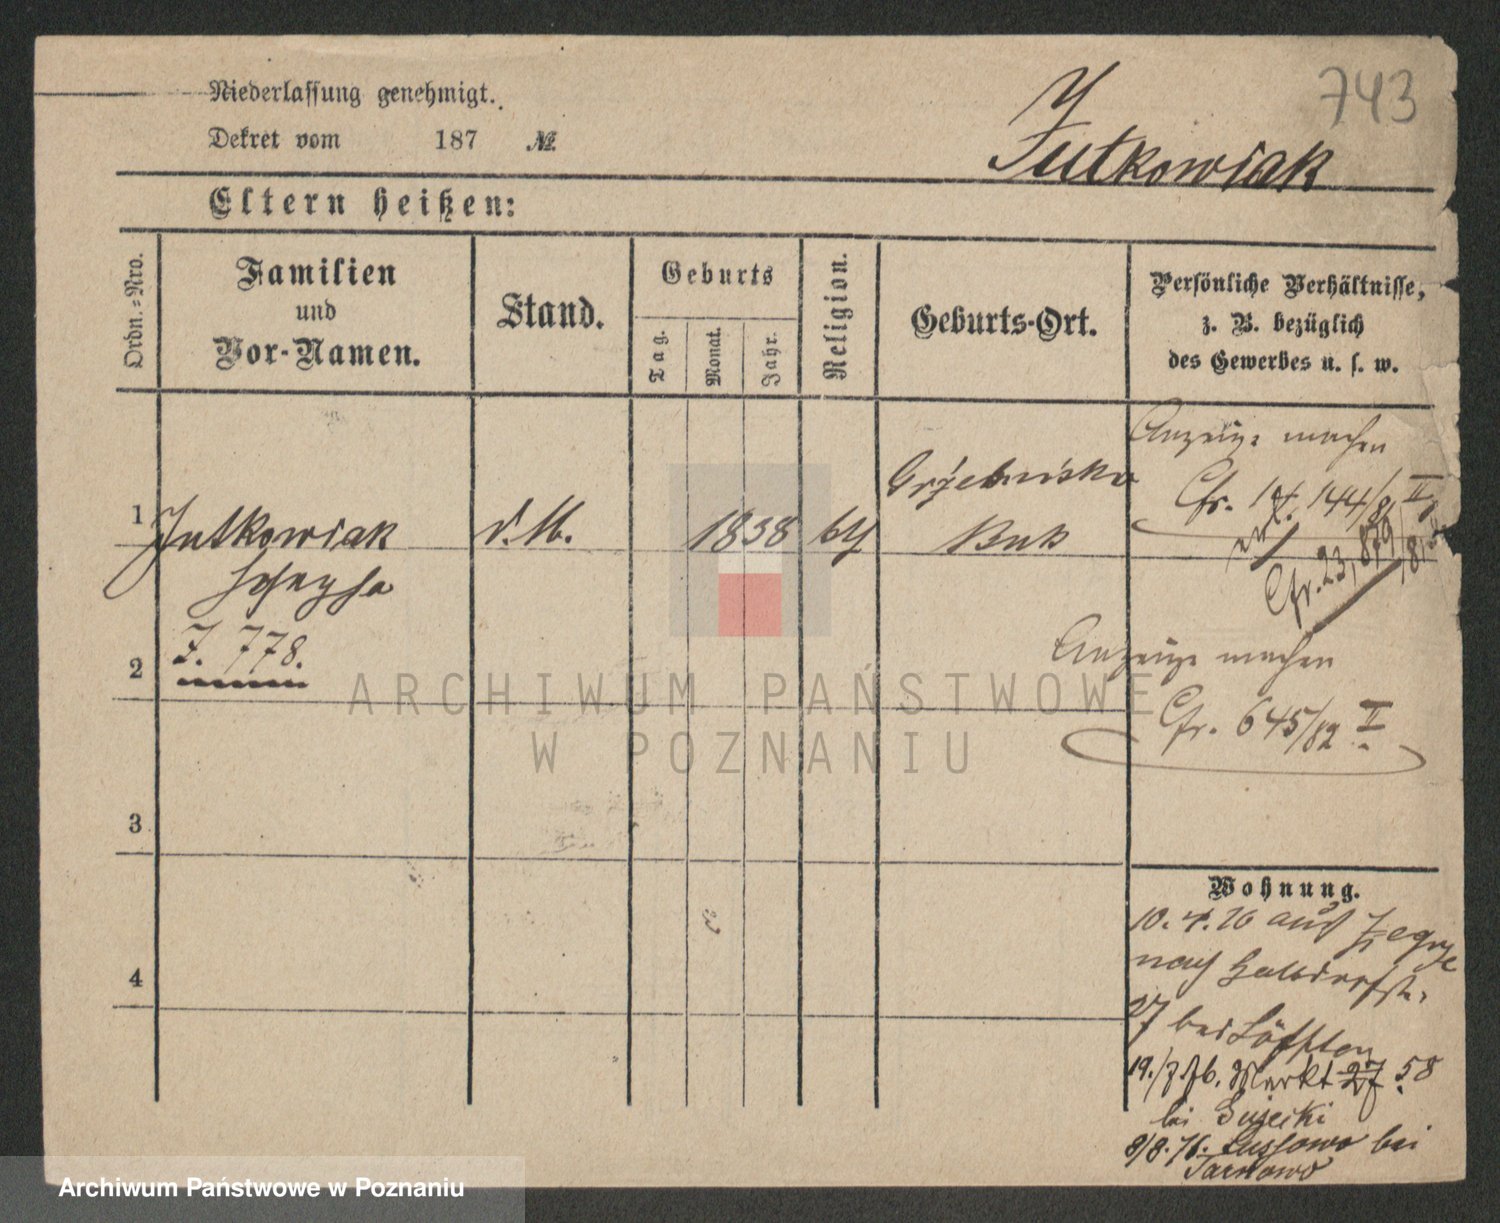 743
Niederlassung genehmigt.
Dekret vom 187 №.
J
Jutkowiak
Eltern heißen:
Ordn.-Nro.
Familien
und
Vor-Namen.
Stand.
Geburts
Tag.
Monat.
Jahr.
Religion.
Geburts-Ort.
Persönliche Verhältnisse,
z. B. bezüglich
des Gewerbes u. s. w.
1
Jutkowiak
Josepha
J. 778.
d. M.
1838
Buk
Anzeige machen
Cfr. 144/81 II
Cfr. 23, 879/81
2
Anzeige machen
Cfr. 645/82 II
3
4
Wohnung.
10. 4. 76 aus Zegrze
nach Halbdorfstr.
27 bei
19./7. 76. Markt 27 58
bei
8/8. 76. Lussowo bei
Tarnowo
ARCHIWUM PAŃSTWOWE
W POZNANIU
Archiwum Państwowe w Poznaniu